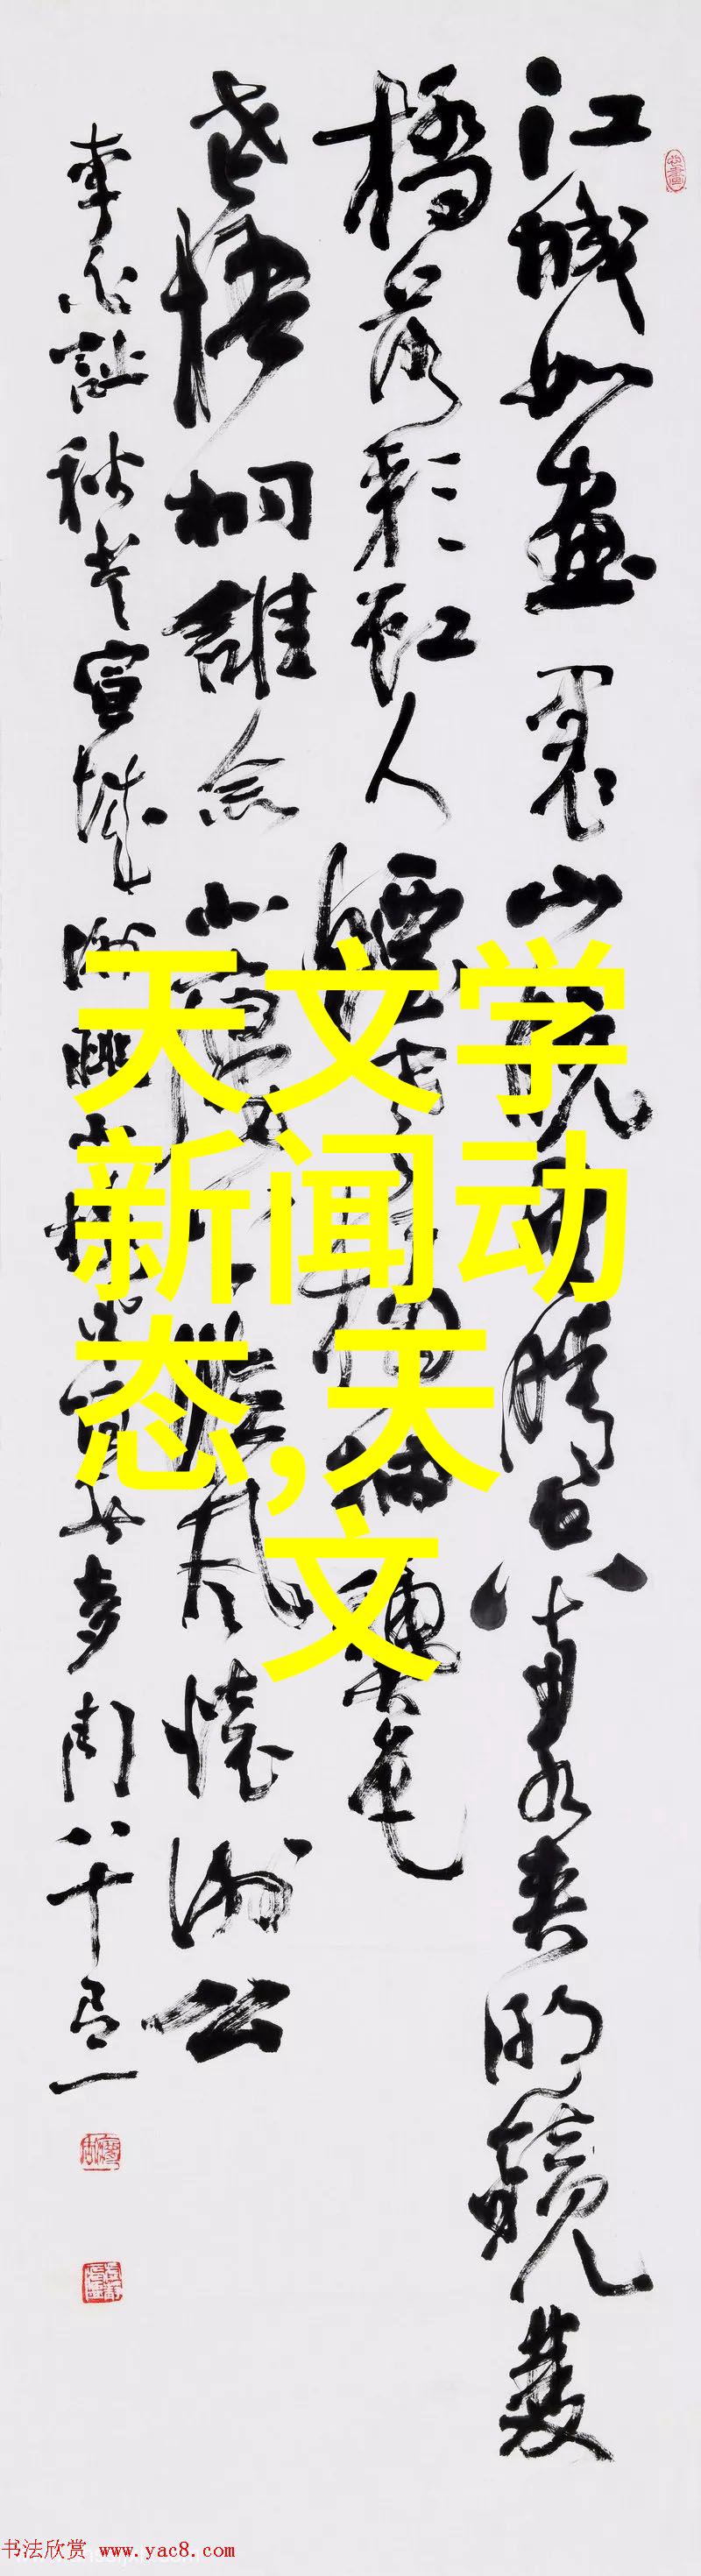 江城如畫裏山晚望晴空兩水夾明鏡雙
橋落彩虹人煙寒橘柚秋色
老梧桐誰念北樓上臨風懷謝公
李白詩秋登宣城謝朓北樓八十有一
天文学
新闻动
态,天
文
书法欣赏 www.yac8.com